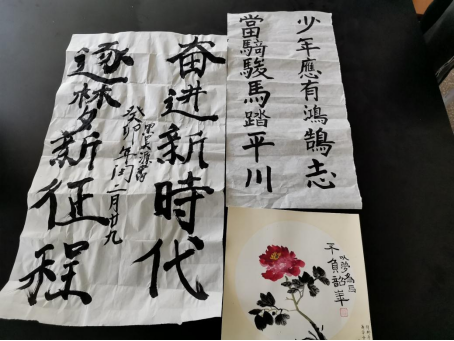 奋进新時代
癸卯年闰二月廿九
逐梦新征程
少年應有鴻鵠志
當騎駿馬踏平川
以夢為馬
不負韶華